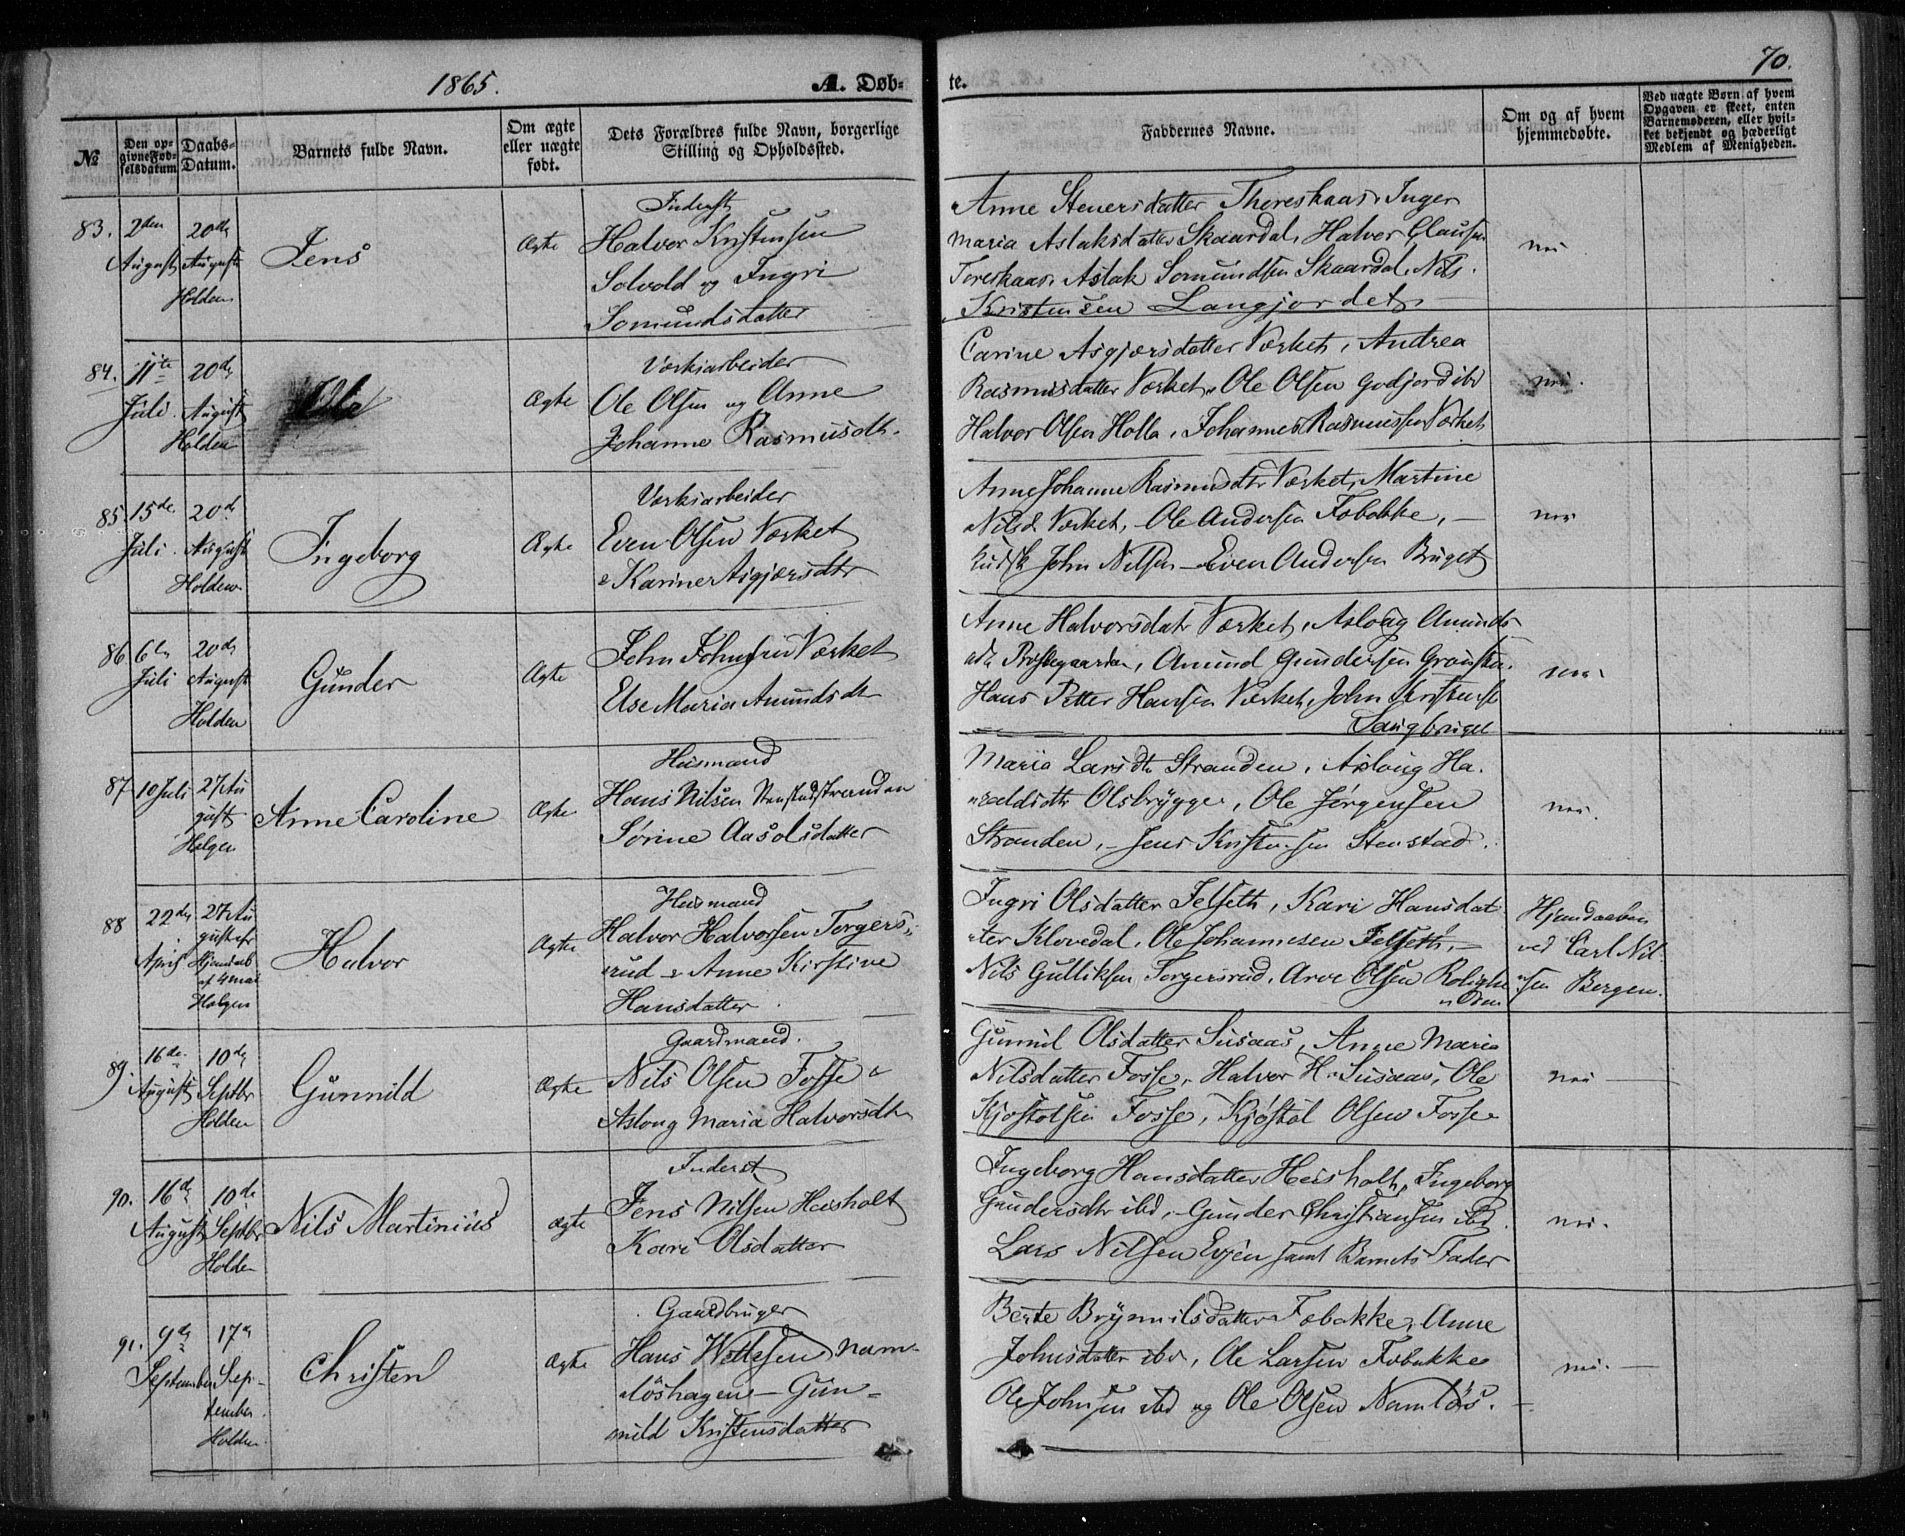 1865.
A. Døb-
te.
70.
№
Den op-
givne Fød-
selsdatum
Daabs-
Datum.
Barnets fulde Navn.
Om ægte
eller uægte
født.
Dets Forældres fulde Navn, borgerlige
Stilling og Opholdssted.
Faddernes Navne.
Om og af hvem
hjemmedøbte.
Ved uægte Børn af hvem
Opgaven er skeet, enten
Barnemoderen, eller hvil-
ket bekjendt og hæderligt
Medlem af Menigheden.
83.
2den
August
20de
August
Holden
Jens
Ægte
Inderst
Halvor Kristensen
Solvold og Ingri
Somundsdatter
Anne Steuersdatter Thereskaas, Inger
Maria Aslaksdatter Skaardal, Halvor Clausen
Toreskaas, Aslak Somundsen Skaardal, Nils
Kristensen Langjordet
nei
84.
11te
Juli.
20de
August
Holden
Ole
Ægte
Værksarbeider
Ole Olsen og Anne
Johanne Rasmusdtr.
Carine Asgjærsdatter Værket, Andrea
Rasmusdatter Værket, Ole Olsen Godjord ibd
Halvor Olsen Holla, Johannes Rasmussen Værket
nei.
85.
15de
Juli.
20de
August
Holden
Ingeborg
Ægte
Værksarbeider
Even Olsen Værket
& Karine Asgjærsdtr
Anne Johanne Rasmusdtr Værket, Martine
Nilsd. Værket, Ole Andersen Fobakke, –
Kudsk John Nilsen – Even Andersen Bruget
nei
86
6te
Juli
20de
August
Holden
Gunder
Ægte
John Johnsen Værket
Else Maria Amundsdtr
Anne Halvorsdatr Værket, Aslaug Amunds-
Præstegaarden, Amund Gundersen
Hans Petter Hansen Værket, John Kristensen
Saugbruget
nei.
87
10 Juli
27 Au
gust
Helgen
Anne Caroline
Ægte
Huusmand
Hans Nilsen Stenstadstranden
Sørine Aasolsdatter
Maria Larsdtr Stranden, Aslaug Ha-
raldsdtr Olsbrygge, Ole Jørgensen
Stranden, – Jens Kristensen Stenstad.
nei.
88
22de
April
27 Au
gust efr
Hjemdaab
af 4 Mai
Helgen
Halvor
Ægte
Huusmand
Halvor Halvorsen Torgers-
rud & Anne Kirstine
Hansdatter.
Ingri Olsdatter Felseth, Kari Hansdat
ter Klovedal, Ole Johannesen Felseth, –
Nils Gulliksen Torgersrud, Arve Olsen Rolighe
den
Hjemdøbt
ved Carl Nil-
sen Bergen.
89.
16de
August
10de
Septbr
Holden
Gunnild
Ægte
Gaardmand.
Nils Olsen Fosse &
Aslaug Maria Halvorsdtr
Gunnil Olsdatter Susaas, Anne Maria
Nilsdatter Fosse, Halvor H. Susaas, Ole
Kjøstolsen Fosse, Kjøstol Olsen Fosse
nei
90.
16de
August
10de
Septbr
Holden
Nils Martinius
Ægte
Inderst
Jens Nilsen Heisholt
Kari Olsdatter
Ingeborg Hansdatter Heisholt, Ingeborg
Gundersdtr ibd, Gunder Christiansen ibd.
Lars Nilsen Evjen samt Barnets Fader
nei.
91.
9de
September
17de
Sep-
tember.
Holden.
Christen
Ægte
Gaardbruger
Hans Wetlesen Nam-
løshagen – Gun-
nild Kristensdatter
Berte Brynnilsdatter Fobakke, Anne
Johnsdatter ibd, Ole Larsen Fobakke
Ole Johnsen ibd og Ole Olsen Namløs.
nei.